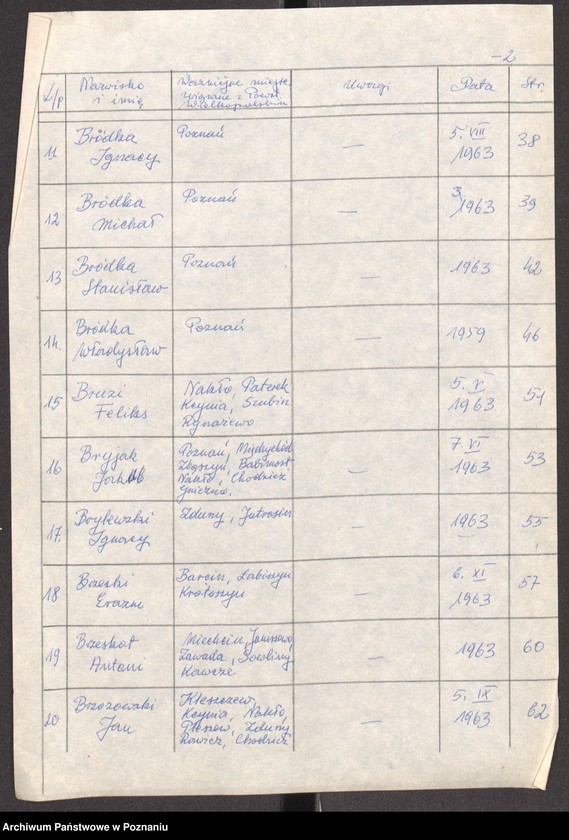 - 2
L/p Nazwisko i imię Ważniejsze miejsc. związane z Powst. Wielkopolskim Uwagi Data Str.
11 Bródka Poznań — 5. VIII 38
Ignacy 1963
12 Bródka Poznań — 3 1963 39
Michał
13 Bródka Poznań — 1963 42
Stanisław
14. Bródka Poznań — 1959 46
Władysław
15 Bruzi Nakło, Paterek 5. X 51
Feliks Kcynia, Szubin — 1963
Rynarzewo
16 Bryjak Poznań, Międzychód 7. VI 53
Jakub Zbąszyń, Babimost — 1963
Nakło, Chodzież
Gniezno.
17. Brylewski Zduny, Jutrosin — 1963 55
Ignacy
18 Brzeski Barcin, Łabiszyn 6. XI 57
Erazm Krotoszyn — 1963
19 Brzeskot Miechcin, 1963 60
Antoni Zawada, —
20 Brzozowski Kleszczew, 5. IX 62
Jan Kcynia, Nakło, — 1963
Pleszew, Zduny
Rawicz, Chodzież
Archiwum Państwowe w Poznaniu